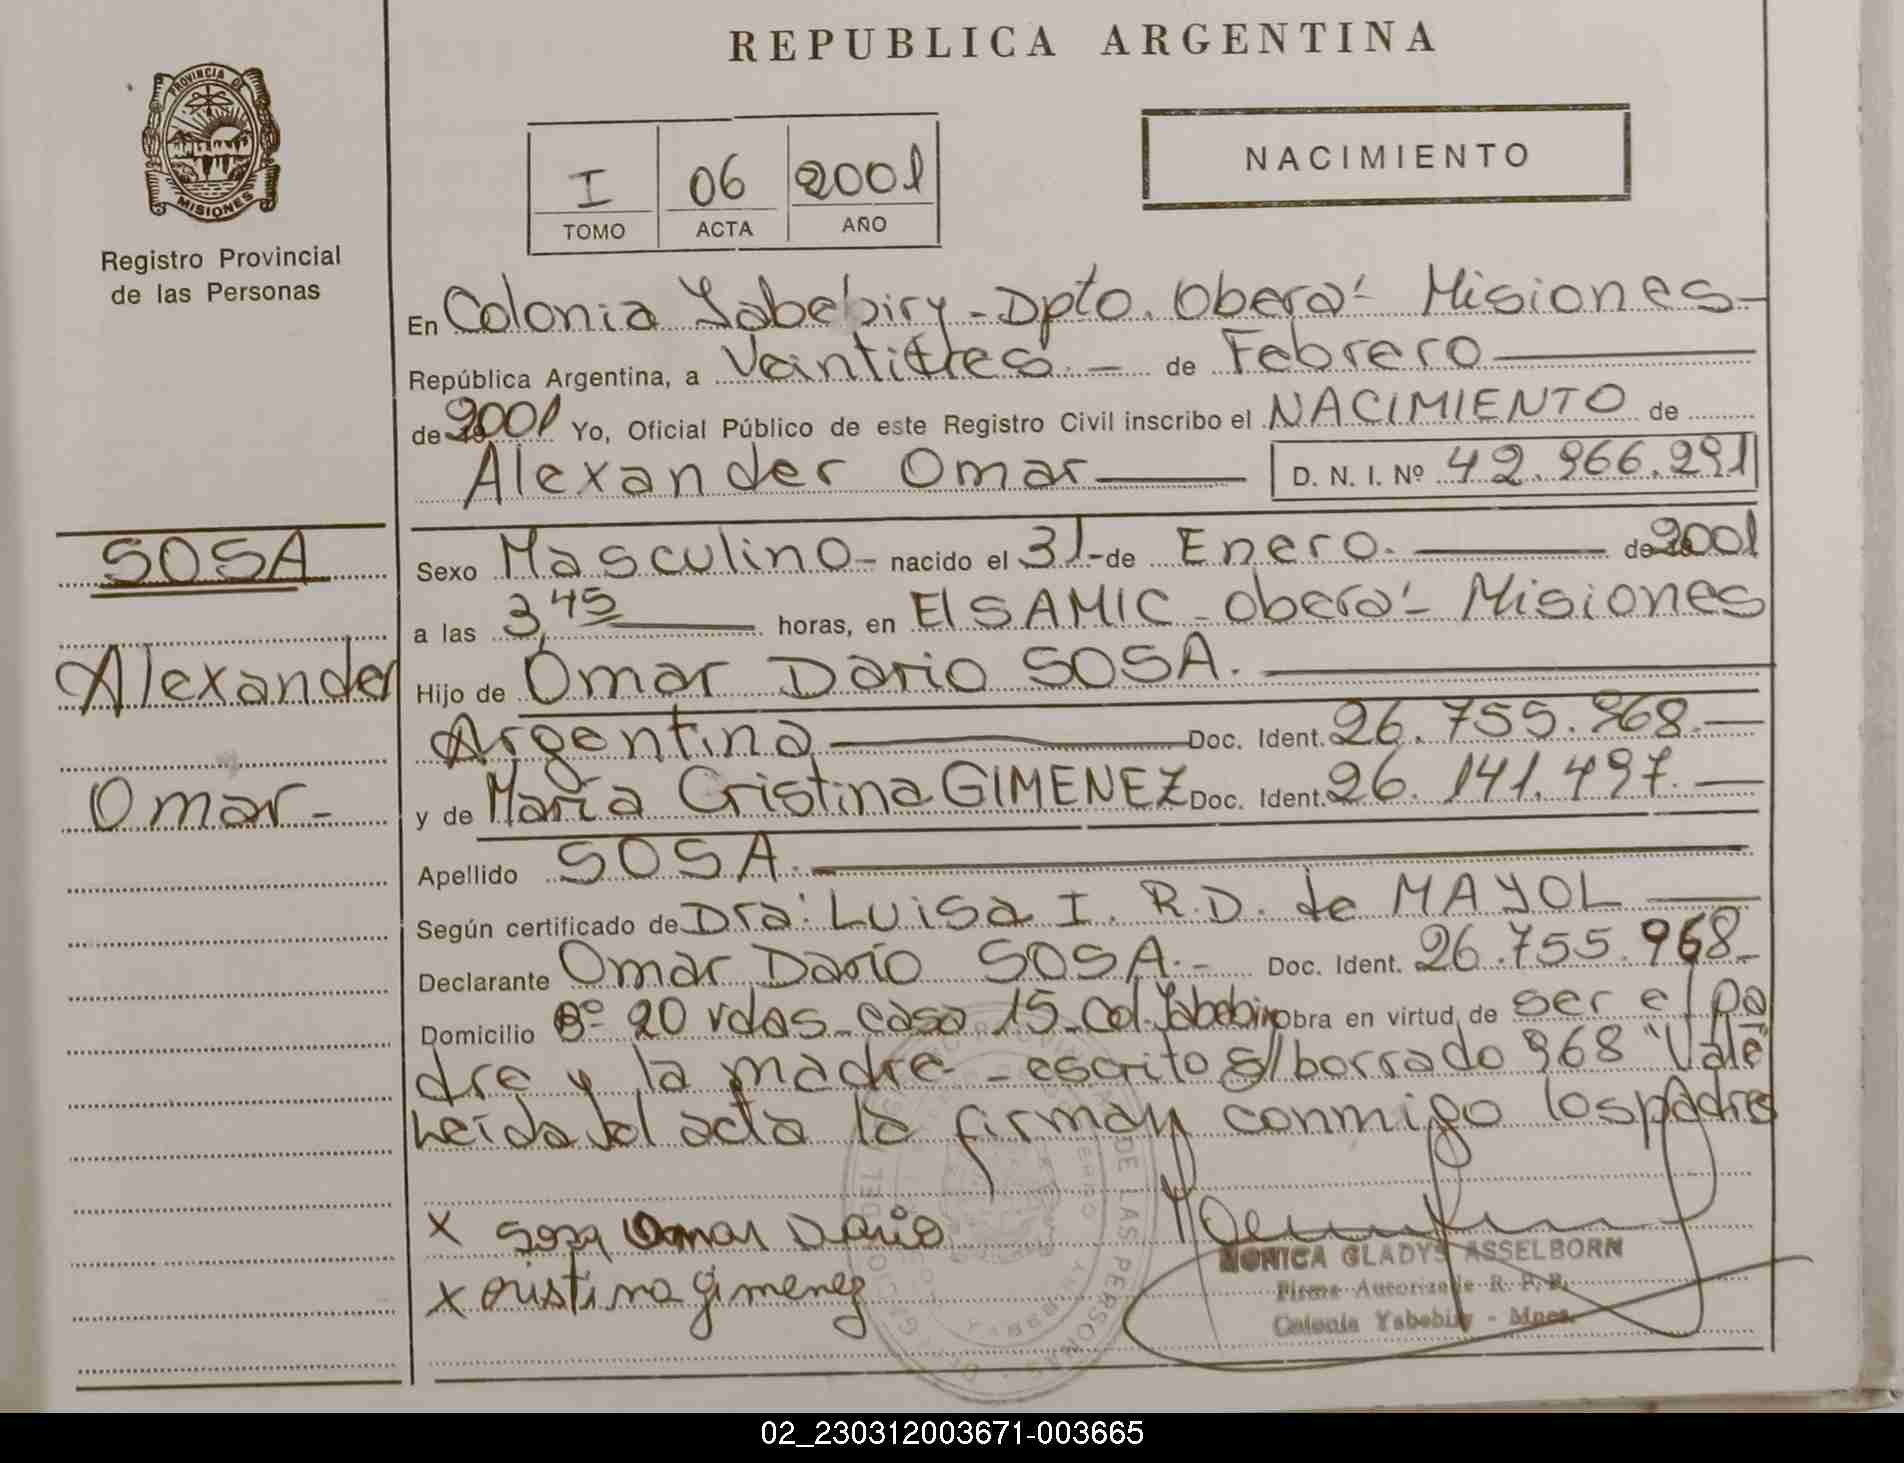 REPUBLICA ARGENTINA
PROVINCIA DE
MISIONES
Registro Provincial
de las Personas
I 06 2001
TOMO ACTA AÑO
NACIMIENTO
En Colonia Yabebiry - Dpto. Oberá - Misiones -
República Argentina, a Veintitres. - de Febrero
de 2001 Yo, Oficial Público de este Registro Civil inscribo el NACIMIENTO de
Alexander Omar D. N. I. Nº 42.966.291
SOSA
Alexander
Omar -
Sexo Masculino - nacido el 31 - de Enero. de 2001
a las 3,45 horas, en El SAMIC - Oberá - Misiones
Hijo de Omar Dario SOSA.
Argentina Doc. Ident. 26.755.968. -
y de María Cristina GIMENEZ Doc. Ident. 26.141.497. -
Apellido SOSA.
Según certificado de Dra: Luisa I. R.D. de MAYOL
Declarante Omar Darío SOSA. - Doc. Ident. 26.755.968 -
Domicilio Bº 20 vdas - casa 15 - Col. Yabebiry obra en virtud de ser el pa
dre y la madre - escrito s/borrado 968 "Vale"
Leída el acta la firman conmigo los padres
X Sosa Omar Dario
X Cristina Gimenez
MONICA GLADYS ASSELBORN
Firma Autorizada R. P. P.
Colonia Yabebiry - Mnes.
DE LAS PERSONAS
02_230312003671-003665